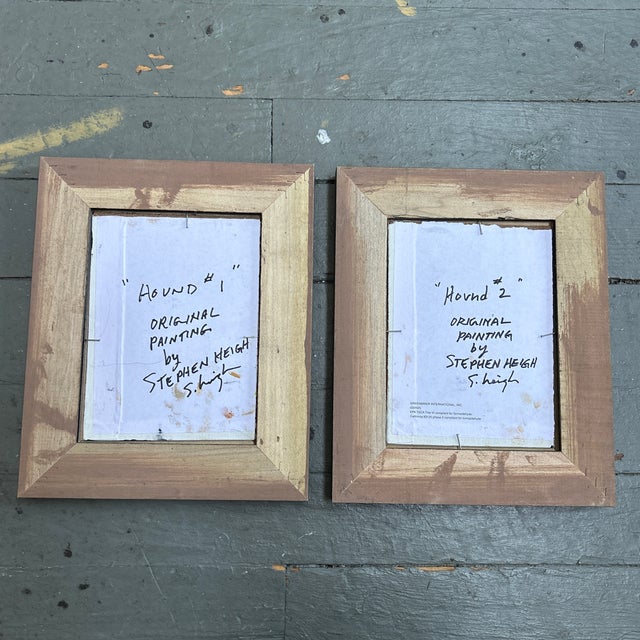 "HOUND #1"
ORIGINAL
PAINTING
by
STEPHEN HEIGH
S. heigh
"Hound #2"
ORIGINAL
PAINTING
by
STEPHEN HEIGH
S. heigh
INTERNATIONAL, INC.